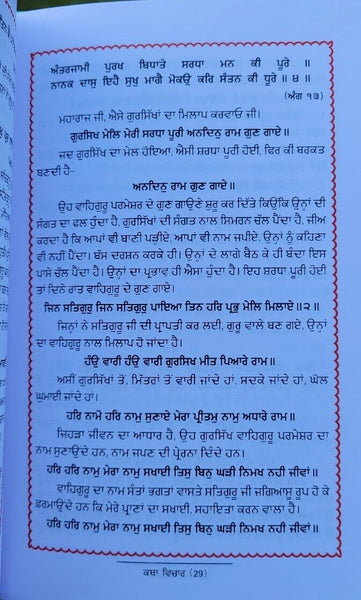 ਅੰਤਰਜਾਮੀ ਪੁਰਖ ਬਿਧਾਤੇ ਸਰਧਾ ਮਨ ਕੀ ਪੂਰੇ ॥
ਨਾਨਕ ਦਾਸੁ ਇਹੈ ਸੁਖੁ ਮਾਗੈ ਮੋਕਉ ਕਰਿ ਸੰਤਨ ਕੀ ਧੂਰੇ ॥੪॥
(ਅੰਗ ੧੩)
ਮਹਾਰਾਜ ਜੀ, ਐਸੇ ਗੁਰਸਿੱਖਾਂ ਦਾ ਮਿਲਾਪ ਕਰਵਾਓ ਜੀ।
ਗੁਰਸਿਖ ਮੇਲਿ ਮੇਰੀ ਸਰਧਾ ਪੂਰੀ ਅਨਦਿਨੁ ਰਾਮ ਗੁਣ ਗਾਏ॥
ਜਦ ਗੁਰਸਿੱਖਾਂ ਦਾ ਮੇਲ ਹੋਇਆ, ਐਸੀ ਸ਼ਰਧਾ ਪੂਰੀ ਹੋਈ, ਫਿਰ ਕੀ ਬਰਕਤ
ਬਣਦੀ ਹੈ-
ਅਨਦਿਨੁ ਰਾਮ ਗੁਣ ਗਾਏ॥
ਉਹ ਵਾਹਿਗੁਰੂ ਪਰਮੇਸ਼ਰ ਦੇ ਗੁਣ ਗਾਉਣੇ ਸ਼ੁਰੂ ਕਰ ਦਿੰਤੇ ਕਿਉਂਕਿ ਉਨ੍ਹਾਂ ਦੀ
ਸੰਗਤ ਦਾ ਫਲ ਹੁੰਦਾ ਹੈ, ਗੁਰਸਿੱਖਾਂ ਦੀ ਸੰਗਤ ਨਾਲ ਸਿਮਰਨ ਚੱਲ ਪੈਂਦਾ ਹੈ, ਜੀਅ
ਕਰਦਾ ਹੈ ਕਿ ਆਪਾਂ ਵੀ ਬਾਣੀ ਪੜ੍ਹੀਏ, ਆਪਾਂ ਵੀ ਨਾਮ ਜਪੀਏ, ਉਨ੍ਹਾਂ ਨੂੰ ਕਹਿਣਾ
ਵੀ ਨਹੀਂ ਪੈਂਦਾ। ਬੱਸ ਦਰਸ਼ਨ ਕਰਕੇ ਹੀ। ਉਨ੍ਹਾਂ ਦੇ ਲਾਗੇ ਬੈਠ ਕੇ ਹੀ ਬੰਦਾ ਇਸ
ਪਾਸੇ ਚੱਲ ਪੈਂਦਾ ਹੈ। ਉਨ੍ਹਾਂ ਦਾ ਪ੍ਰਭਾਵ ਹੀ ਐਸਾ ਹੁੰਦਾ ਹੈ। ਇਹ ਸ਼ਰਧਾ ਪੂਰੀ ਹੋਈ
ਤਾਂ ਦਿਨੇ ਰਾਤ ਵਾਹਿਗੁਰੂ ਦੇ ਗੁਣ ਗਾਏ।
ਜਿਨ ਸਤਿਗੁਰੁ ਜਿਨ ਸਤਿਗੁਰੁ ਪਾਇਆ ਤਿਨ ਹਰਿ ਪ੍ਰਭੁ ਮੇਲਿ ਮਿਲਾਏ॥੨॥
ਜਿਨ੍ਹਾਂ ਨੇ ਸਤਿਗੁਰੂ ਜੀ ਦੀ ਪ੍ਰਾਪਤੀ ਕਰ ਲਈ, ਗੁਰੂ ਵਾਲੇ ਬਣ ਗਏ, ਉਨ੍ਹਾਂ
ਦਾ ਵਾਹਿਗੁਰੂ ਨਾਲ ਮਿਲਾਪ ਹੋ ਜਾਂਦਾ ਹੈ।
ਹੰਉ ਵਾਰੀ ਹੰਉ ਵਾਰੀ ਗੁਰਸਿਖ ਮੀਤ ਪਿਆਰੇ ਰਾਮ॥
ਅਸੀਂ ਗੁਰਸਿੱਖਾਂ ਤੋਂ, ਮਿੱਤਰਾਂ ਤੋਂ ਵਾਰੀ ਜਾਂਦੇ ਹਾਂ, ਸਦਕੇ ਜਾਂਦੇ ਹਾਂ, ਘੋਲ
ਘੁਮਾਈ ਜਾਂਦੇ ਹਾਂ।
ਹਰਿ ਨਾਮੋ ਹਰਿ ਨਾਮੁ ਸੁਣਾਏ ਮੇਰਾ ਪ੍ਰੀਤਮੁ ਨਾਮੁ ਅਧਾਰੇ ਰਾਮ॥
ਜਿਹੜਾ ਜੀਵਨ ਦਾ ਆਧਾਰ ਹੈ, ਉਹ ਗੁਰਸਿੱਖ ਵਾਹਿਗੁਰੂ ਪਰਮੇਸ਼ਰ ਦਾ
ਨਾਮ ਸੁਣਾਉਂਦੇ ਹਨ, ਨਾਮ ਜਪਣ ਦੀ ਪ੍ਰੇਰਨਾ ਦਿੰਦੇ ਹਨ।
ਹਰਿ ਹਰਿ ਨਾਮੁ ਮੇਰਾ ਨਾਮੁ ਸਖਾਈ ਤਿਸੁ ਬਿਨੁ ਘੜੀ ਨਿਮਖ ਨਹੀ ਜੀਵਾਂ॥
ਵਾਹਿਗੁਰੂ ਦਾ ਨਾਮ ਸੰਤਾਂ ਭਗਤਾਂ ਵਾਸਤੇ ਸਤਿਗੁਰੂ ਜੀ ਜਗਿਆਸੂ ਰੂਪ ਹੋ ਕੇ
ਫ਼ਰਮਾਉਂਦੇ ਹਨ ਕਿ ਮੇਰੇ ਪ੍ਰਾਣਾਂ ਦਾ ਸਖਾਈ, ਸਹਾਇਤਾ ਕਰਨ ਵਾਲਾ ਹੈ।
ਹਰਿ ਹਰਿ ਨਾਮੁ ਮੇਰਾ ਨਾਮੁ ਸਖਾਈ ਤਿਸੁ ਬਿਨੁ ਘੜੀ ਨਿਮਖ ਨਹੀ ਜੀਵਾਂ॥
ਕਥਾ ਵਿਚਾਰ (29)